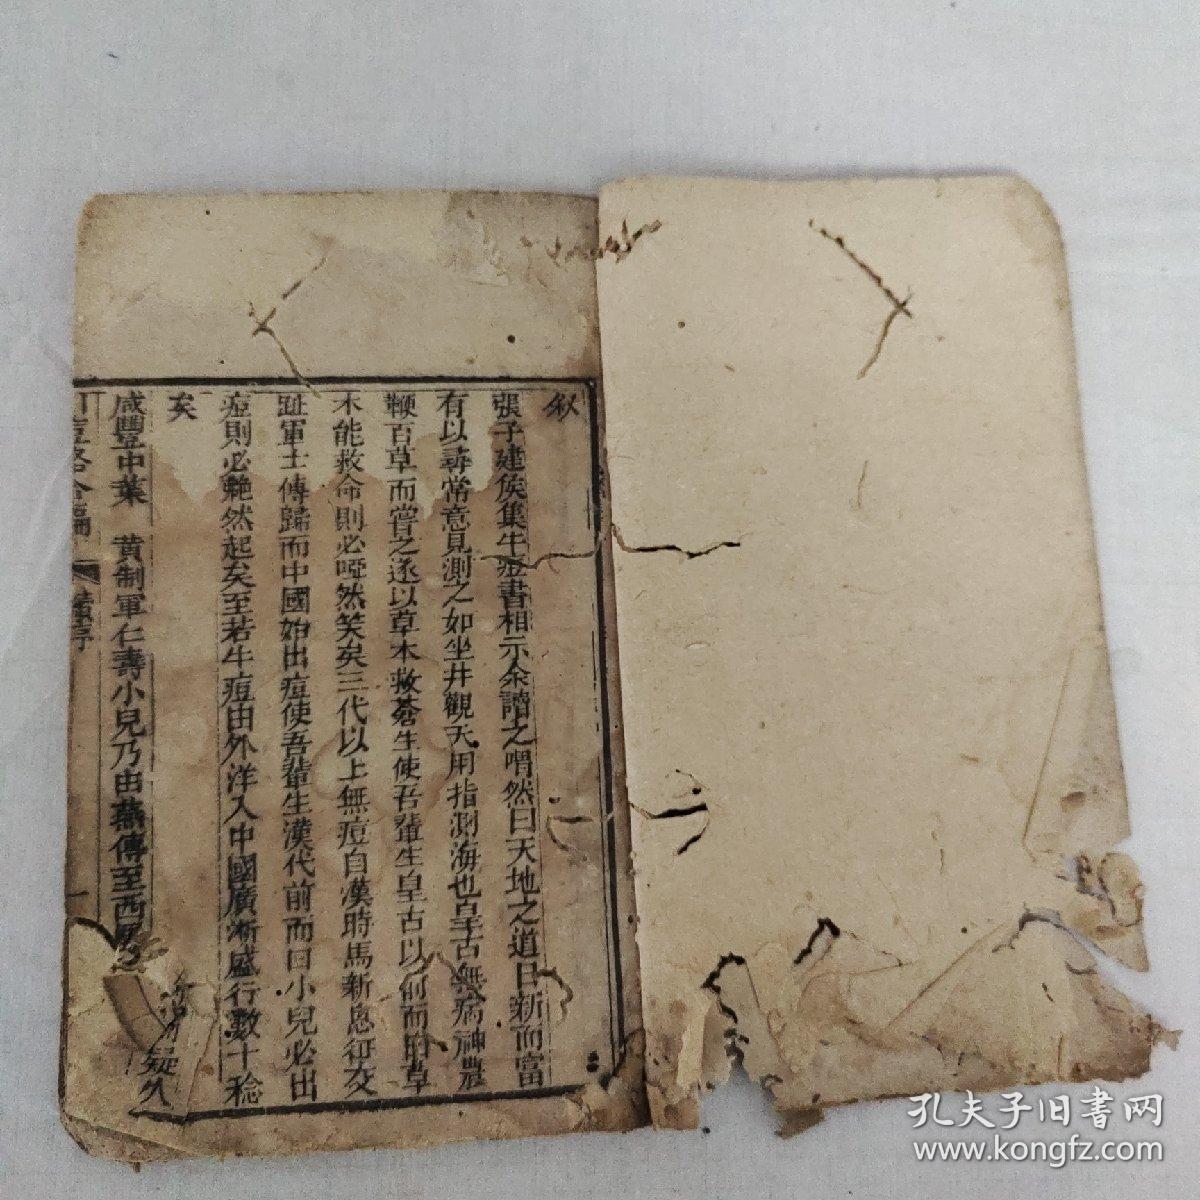 叙
張子建侯集牛痘書相示余讀之喟然曰天地之道日新而富
有以尋常意見測之如坐井觀天用指測海也皇古無病神農
鞭百草而嘗之遂以草木救蒼生使吾輩生皇古以前而曰草
木能救命則必啞然笑矣三代以上無痘自漢時馬新息征交
趾軍士傳歸而中國始出痘使吾輩生漢代前而曰小兒必出
痘則必艴然起矣至若牛痘由外洋入中國廣漸盛行數十稔
矣
咸豐中葉 黄制軍仁壽小兒乃由燕傳至西 疑久
引痘畧合編 序 一
孔夫子旧書网
www.kongfz.com